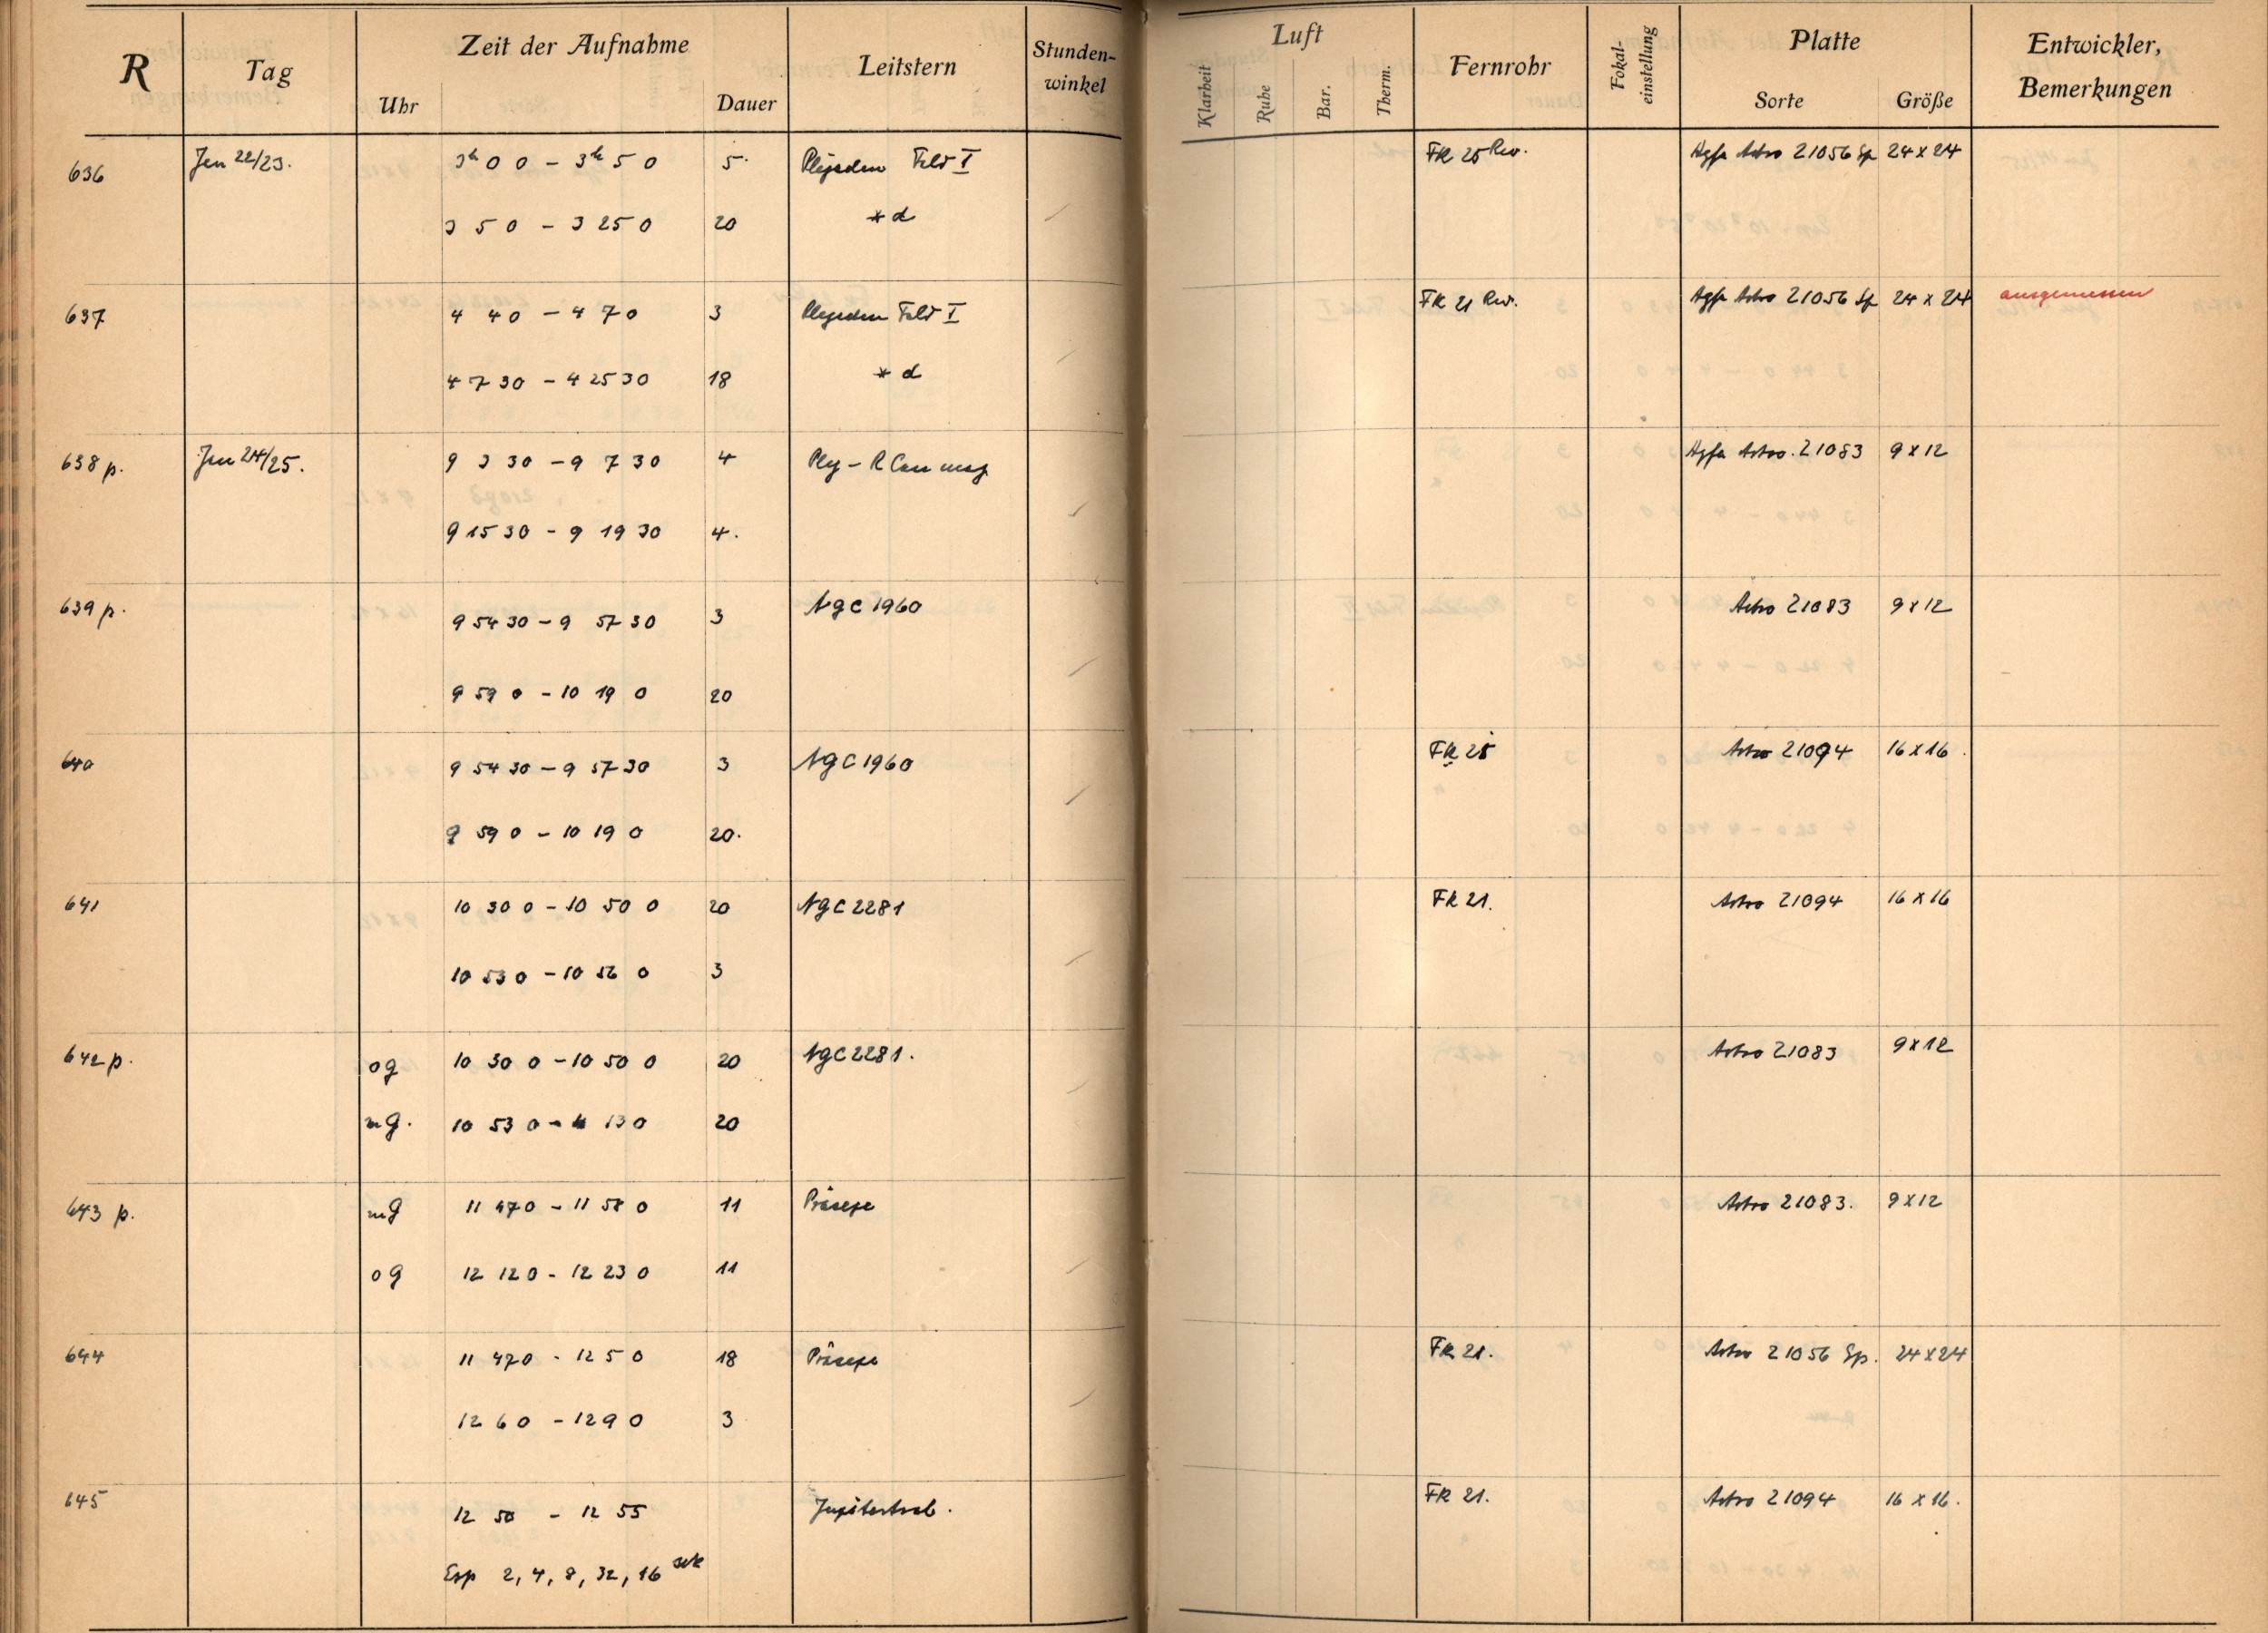 R Tag Zeit der Aufnahme Leitstern Stunden-winkel Luft Fernrohr Fokal-einstellung Platte Entwickler, Bemerkungen
Uhr Dauer Klarheit Ruhe Bar. Therm. Sorte Größe
636 Jan 22/23. 3h 0 0 – 3h 5 0 5. Plejaden Feld I FK 25 Rev. Agfa Astro 21056 Sp 24 x 24
3 5 0 – 3 25 0 20 * d
637 4 4 0 – 4 7 0 3 Plejaden Feld I FK 21 Rev. Agfa Astro 21056 Sp 24 x 24 ausgemessen
4 7 30 – 4 25 30 18 * d
638 p. Jan 24/25. 9 3 30 – 9 7 30 4 Plej – R Agfa Astro. 21083 9 x 12
9 15 30 – 9 19 30 4.
639 p. 9 54 30 – 9 57 30 3 NGC 1960 Astro 21083 9 x 12
9 59 0 – 10 19 0 20
640 9 54 30 – 9 57 30 3 NGC 1960 FK 25 Astro 21094 16 x 16
9 59 0 – 10 19 0 20.
641 10 30 0 – 10 50 0 20 NGC 2281 FK 21. Astro 21094 16 x 16
10 53 0 – 10 56 0 3
642 p. og 10 30 0 – 10 50 0 20 NGC 2281. Astro 21083 9 x 12
mg. 10 53 0 – 11 13 0 20
643 p. mg 11 47 0 – 11 58 0 11 Präsepe Astro 21083. 9 x 12
og 12 12 0 – 12 23 0 11
644 11 47 0 – 12 5 0 18 Präsepe FK 21. Astro 21056 Sp. 24 x 24
12 6 0 – 12 9 0 3
645 12 50 – 12 55 Jupitertrab. FK 21. Astro 21094 16 x 16.
Exp 2, 4, 8, 32, 16 sek